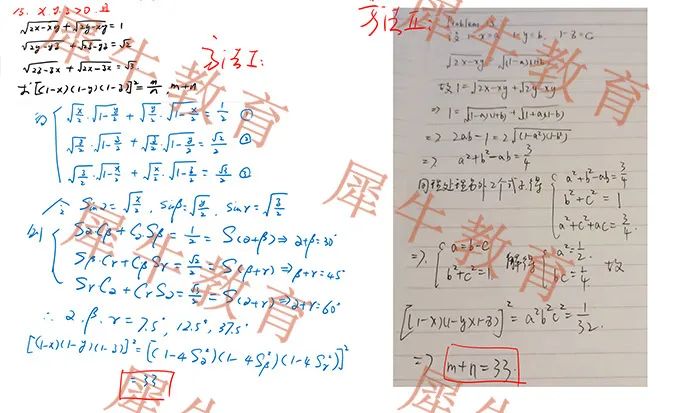 15. x.y.z>0. 且
√2x-xy + √2y-xy = 1
√2y-yz + √2z-yz = √2
√2z-zx + √2x-zx = √3.
求[(1-x)(1-y)(1-z)]²=m/n, m+n
方法I:
√x/2 · √1-y/2 + √y/2 · √1-x/2 = 1/2 ①
√y/2 · √1-z/2 + √z/2 · √1-y/2 = √2/2 ②
√z/2 · √1-x/2 + √x/2 · √1-z/2 = √3/2 ③
Sinα=√x/2, Sinβ=√y/2, Sinγ=√z/2
则 SαCβ + CαSβ = 1/2 = S(α+β) ⇒ α+β=30°
SβCγ + CβSγ = √2/2 = S(β+γ) ⇒ β+γ=45°
SγCα + CγSα = √3/2 = S(α+γ) ⇒ α+γ=60°
∴ α.β.γ = 7.5°, 12.5°, 37.5°
[(1-x)(1-y)(1-z)]²=[(1-4Sα²)(1-4Sβ²)(1-4Sγ²)]²
= 33
方法II:
Problems 15
1-x=a, 1-y=b, 1-z=c
√2x-xy = √(1-a)(1+b)
故 1=√2x-xy+√2y-xy
⇒ 1=√(1-a)(1+b)+√(1+a)(1-b)
⇒ 2ab-1=2√(1-a²)(1-b²)
⇒ a²+b²-ab=3/4
同理处理另外2个式子.得
a²+b²-ab=3/4
b²+c²=1
a²+c²+ac=3/4.
⇒ a=b-c
b²+c²=1
解得
a²=1/2.
bc=1/4.
故
[(1-x)(1-y)(1-z)]²=a²b²c²=1/32.
⇒ m+n=33.
犀牛教育
犀牛教育
犀牛教育
犀牛教育